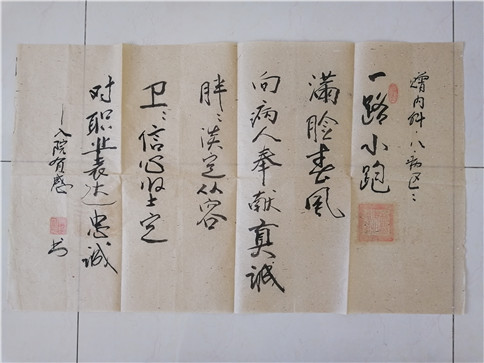 赠内科八病区:
一路小跑
满脸春风
向病人奉献真诚
胖:淡定从容
卫:信心坚定
对职业表达忠诚
—入院有感